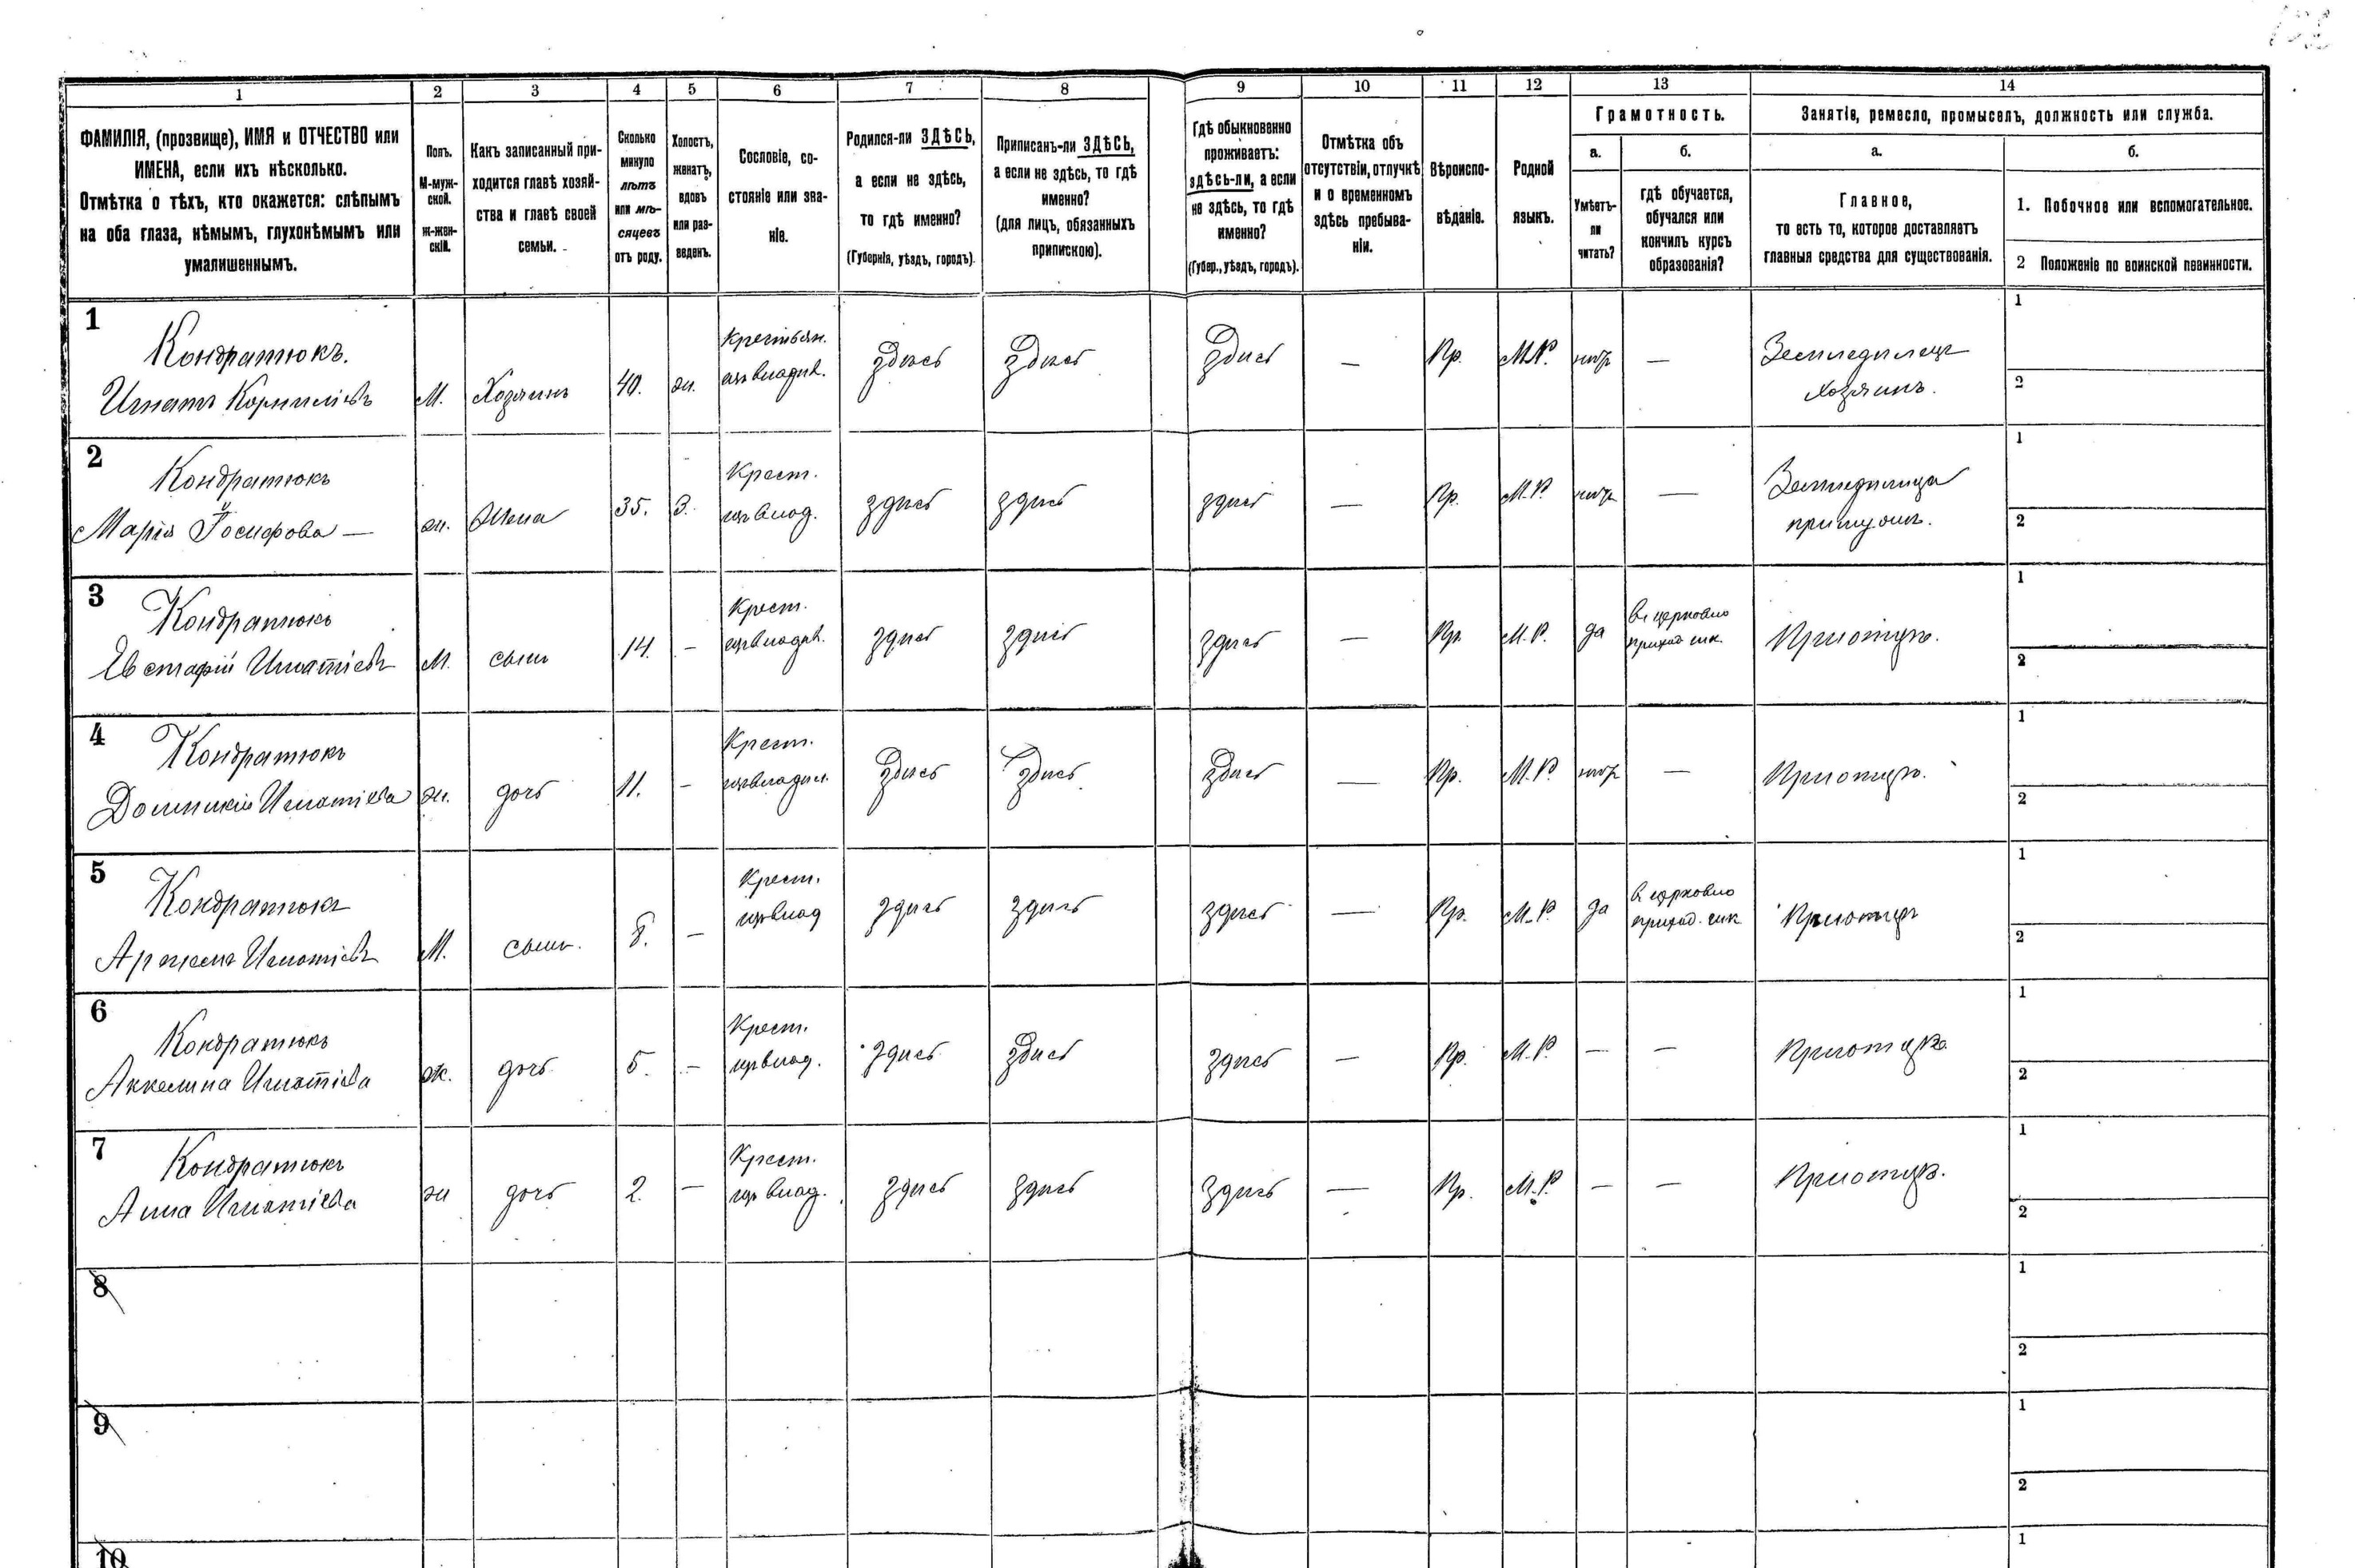 1 2 3 4 5 6 7 8 9 10 11 12 13 14
ФАМИЛІЯ, (прозвище), ИМЯ и ОТЧЕСТВО или
ИМЕНА, если ихъ нѣсколько.
Отмѣтка о тѣхъ, кто окажется: слѣпымъ
на оба глаза, нѣмымъ, глухонѣмымъ или
умалишеннымъ.
Полъ.
М-муж-
ской.
Ж-жен-
скій.
Какъ записанный при-
ходится главѣ хозяй-
ства и главѣ своей
семьи.
Сколько
минуло
лѣтъ
или мѣ-
сяцевъ
отъ роду.
Холостъ,
женатъ,
вдовъ
или раз-
веденъ.
Сословіе, со-
стояніе или зва-
ніе.
Родился-ли ЗДѢСЬ,
а если не здѣсь,
то гдѣ именно?
(Губернія, уѣздъ, городъ).
Приписанъ-ли ЗДѢСЬ,
а если не здѣсь, то гдѣ
именно?
(для лицъ, обязанныхъ
припискою).
Гдѣ обыкновенно
проживаетъ:
здѣсь-ли, а если
не здѣсь, то гдѣ
именно?
(Губер., уѣздъ, городъ).
Отмѣтка объ
отсутствіи, отлучкѣ
и о временномъ
здѣсь пребыва-
ніи.
Вѣроиспо-
вѣданіе.
Родной
языкъ.
Грамотность.
а.
Умѣетъ-
ли
читать?
б.
гдѣ обучается,
обучался или
кончилъ курсъ
образованія?
Занятіе, ремесло, промыселъ, должность или служба.
а.
Главное,
то есть то, которое доставляетъ
главныя средства для существованія.
б.
1. Побочное или вспомогательное.
2 Положеніе по воинской повинности.
1
Кондратюкъ.
Игнатъ Корниліевъ
М.
Хозяинъ
40.
ж.
Крестьян.
здѣсь
здѣсь
здѣсь
—
Пр.
М.Р.
нѣтъ
—
Земледѣлецъ
хозяинъ.
1
2
2
Кондратюкъ
Марія Іосифова —
ж.
жена
35.
З.
Крест.
здѣсь
здѣсь
здѣсь
—
Пр.
М.Р.
нѣтъ
—
Земледѣлица
1
2
3
Кондратюкъ
Евстафій Игнатіевъ
М.
сынъ
14.
—
Крест.
здѣсь
здѣсь
здѣсь
—
Пр.
М.Р.
да
въ церковно
приход. шк.
1
2
4
Кондратюкъ
Домникія Игнатіева
ж.
дочь
11.
—
Крест.
здѣсь
здѣсь
здѣсь
—
Пр.
М.Р.
нѣтъ
—
1
2
5
Кондратюкъ
Артемъ Игнатіевъ
М.
сынъ.
8.
—
Крест.
здѣсь
здѣсь
здѣсь
—
Пр.
М.Р.
да
въ церковно
приход. шк.
1
2
6
Кондратюкъ
Аккелина Игнатіева
ж.
дочь
5.
—
Крест.
здѣсь
здѣсь
здѣсь
—
Пр.
М.Р.
—
—
1
2
7
Кондратюкъ
Анна Игнатіева
ж
дочь
2.
—
Крест.
здѣсь
здѣсь
здѣсь
—
Пр.
М.Р.
—
—
1
2
8
1
2
9
1
2
10
1